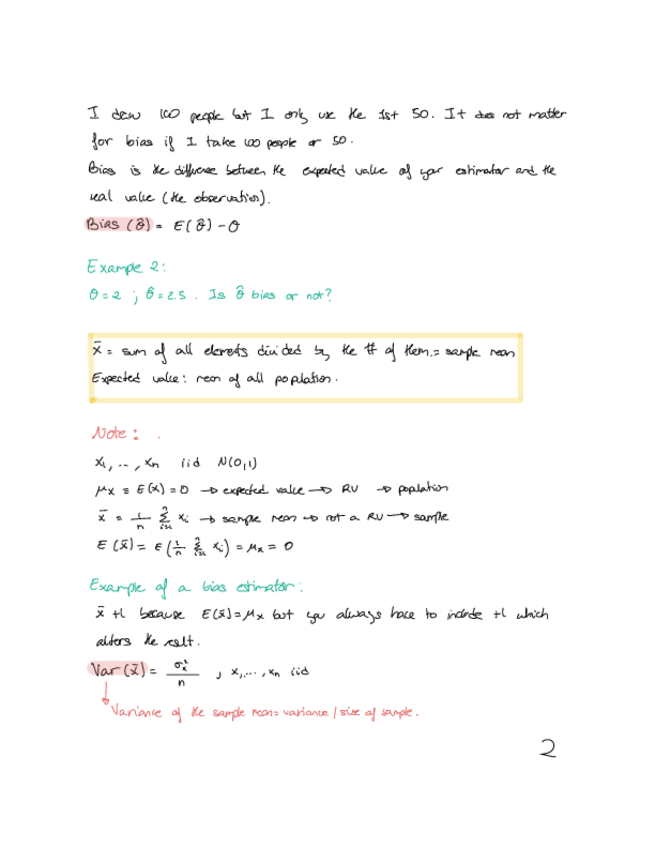 I draw 100 people but I only use the 1st 50. It does not matter
for bias if I take 100 people or 50.
Bias is the difference between the expected value of your estimator and the
real value (the observation).
Bias (θ̂) = E(θ̂) - θ
Example 2:
θ = 2 ; θ̂ = 2.5 . Is θ̂ bias or not?
x̄ = sum of all elements divided by the # of them. = sample mean
Expected value: mean of all population.
Note: .
x₁, ..., xₙ iid N(0,1)
μx ≡ E(x) = 0 → expected value → RV → population
x̄ = 1/n Σ xᵢ → sample mean → not a RV → sample
E (x̄) = E(1/n Σ xᵢ) = μx = 0
Example of a bias estimator:
x̄ +1 because E(x̄) = μx but you always have to include +1 which
alters the result.
Var (x̄) = σx²/n , x₁, ..., xₙ iid
Variance of the sample mean = variance / size of sample.
2